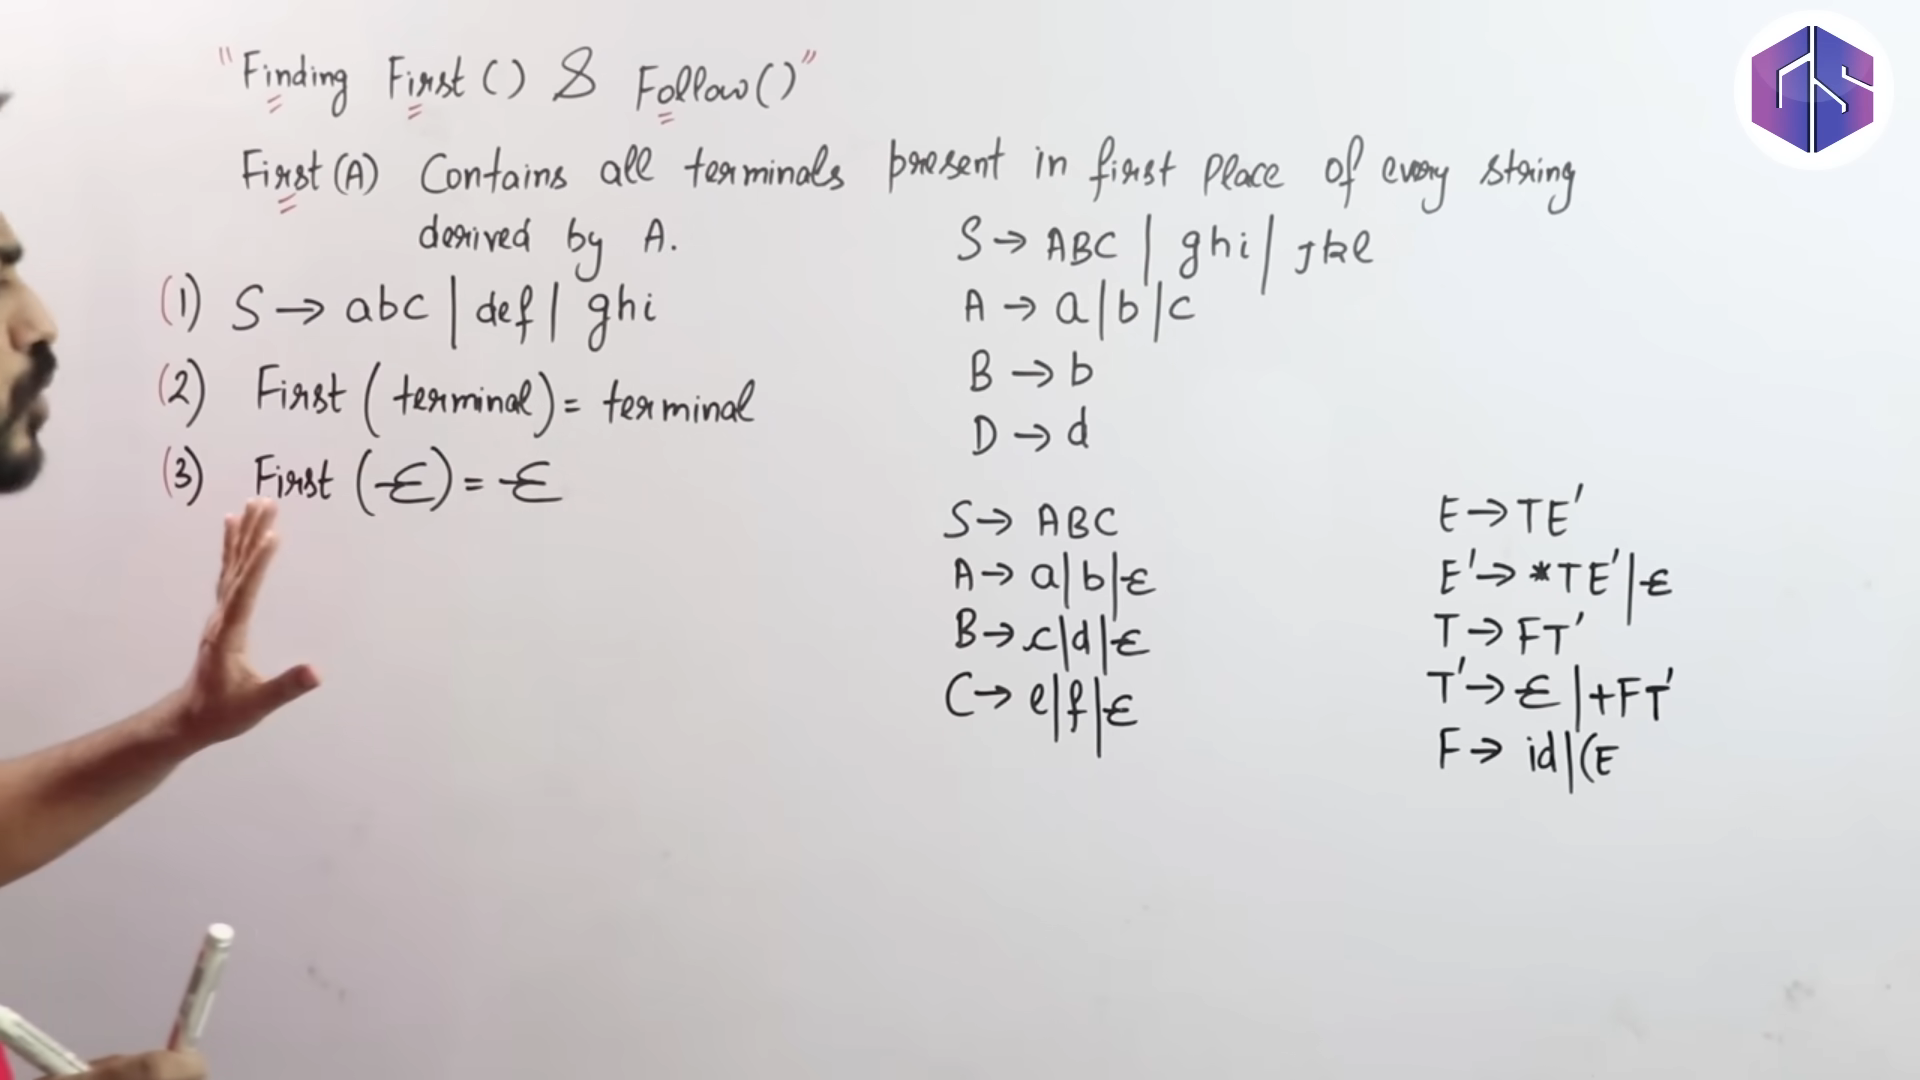 "Finding First() & Follow()"
First(A) Contains all terminals present in first Place of every string
derived by A.
(1) S → abc | def | ghi
(2) First (terminal) = terminal
(3) First (Є) = Є
S → ABC | ghi | jkl
A → a | b | c
B → b
D → d
S → ABC
A → a | b | Є
B → c | d | Є
C → e | f | Є
E → TE'
E' → *TE' | Є
T → FT'
T' → Є | +FT'
F → id | (E